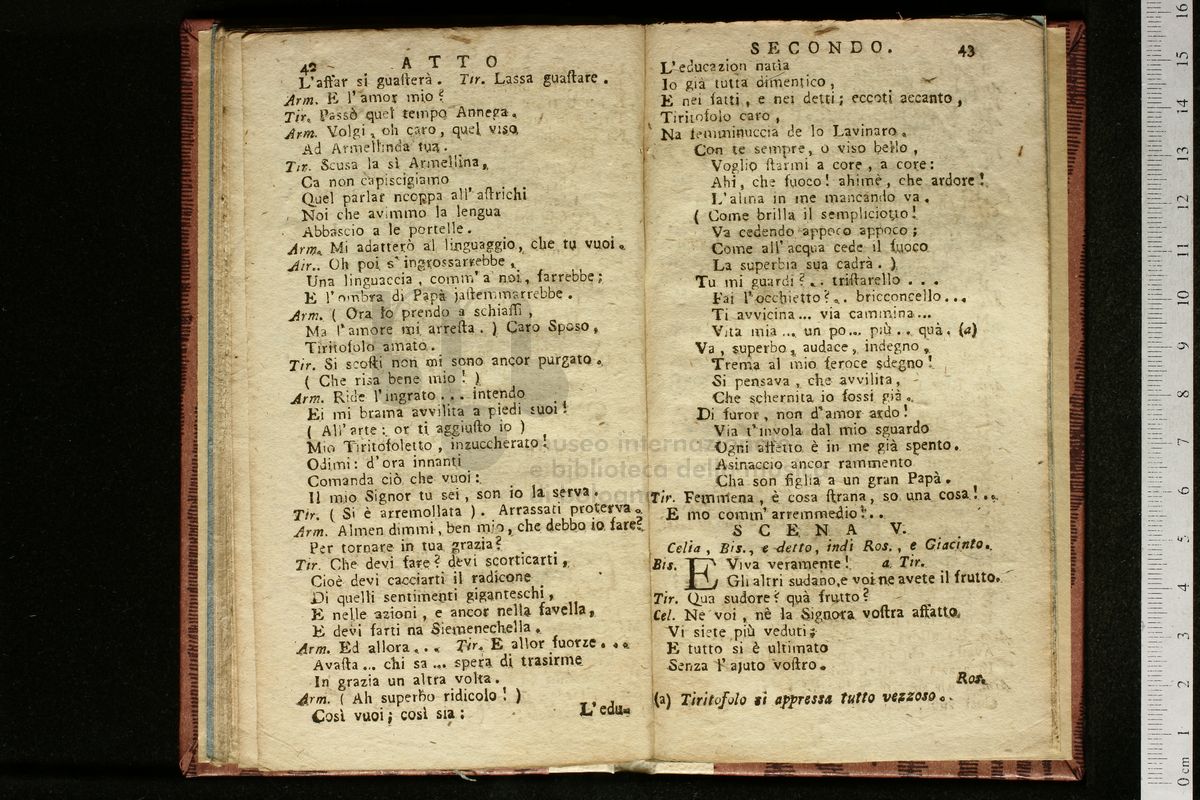 42 ATTO
L'affar si guasterà. Tir. Lassa guastare.
Arm. E l'amor mio?
Tir. Passò quel tempo Annega.
Arm. Volgi, oh caro, quel viso
Ad Armellinda tua.
Tir. Scusa la sì Armellina,
Ca non capiscigiamo
Quel parlar ncoppa all'astrichi
Noi che avimmo la lengua
Abbascio a le portelle.
Arm. Mi adatterò al linguaggio, che tu vuoi.
Air.. Oh poi s'ingrossarrebbe,
Una linguaccia, comm'a noi, farrebbe;
E l'ombra di Papà jastemmarrebbe.
Arm. (Ora lo prendo a schiaffi,
Ma l'amore mi arresta.) Caro Sposo,
Tiritofolo amato.
Tir. Si scosti non mi sono ancor purgato.
(Che risa bene mio!)
Arm. Ride l'ingrato... intendo
Ei mi brama avvilita a piedi suoi!
(All'arte: or ti aggiusto io)
Mio Tiritofoletto, inzuccherato!
Odimi: d'ora innanti
Comanda ciò che vuoi:
Il mio Signor tu sei, son io la serva.
Tir. (Si è arremollata). Arrassati proterva.
Arm. Almen dimmi, ben mio, che debbo io fare?
Per tornare in tua grazia?
Tir. Che devi fare? devi scorticarti,
Cioè devi cacciarti il radicone
Di quelli sentimenti giganteschi,
E nelle azioni, e ancor nella favella,
E devi farti na Siemenechella.
Arm. Ed allora... Tir. E allor fuorze...
Avasta... chi sa... spera di trasirme
In grazia un altra volta.
Arm. (Ah superbo ridicolo!)
Così vuoi; così sia:
L'edu-
SECONDO. 43
L'educazion natìa
Io già tutta dimentico,
E nei fatti, e nei detti; eccoti accanto,
Tiritofolo caro,
Na femminuccia de lo Lavinaro.
Con te sempre, o viso bello,
Voglio starmi a core, a core:
Ahi, che fuoco! ahimè, che ardore!
L'alma in me mancando va.
(Come brilla il sempliciotto!
Va cedendo appoco appoco;
Come all'acqua cede il fuoco
La superbia sua cadrà.)
Tu mi guardi?.. tristarello...
Fai l'occhietto?.. bricconcello...
Ti avvicina... via cammina...
Vita mia... un po... più.. quà. (a)
Va, superbo, audace, indegno,
Trema al mio feroce sdegno!
Si pensava, che avvilita,
Che schernita io fossi già.
Di furor, non d'amor ardo!
Via t'invola dal mio sguardo
Ogni affetto è in me già spento.
Asinaccio ancor rammento
Cha son figlia a un gran Papà.
Tir. Femmena, è cosa strana, so una cosa!..
E mo comm'arremmedio!..
SCENA V.
Celia, Bis., e detto, indi Ros., e Giacinto.
Bis. E Viva veramente! a Tir.
Gli altri sudano, e voi ne avete il frutto.
Tir. Qua sudore? quà frutto?
Cel. Nè voi, nè la Signora vostra affatto
Vi siete più veduti;
E tutto si è ultimato
Senza l'ajuto vostro.
Ros.
(a) Tiritofolo si appressa tutto vezzoso.
museo internazionale
e biblioteca della musica
di bologna
0 cm 1 2 3 4 5 6 7 8 9 10 11 12 13 14 15 16